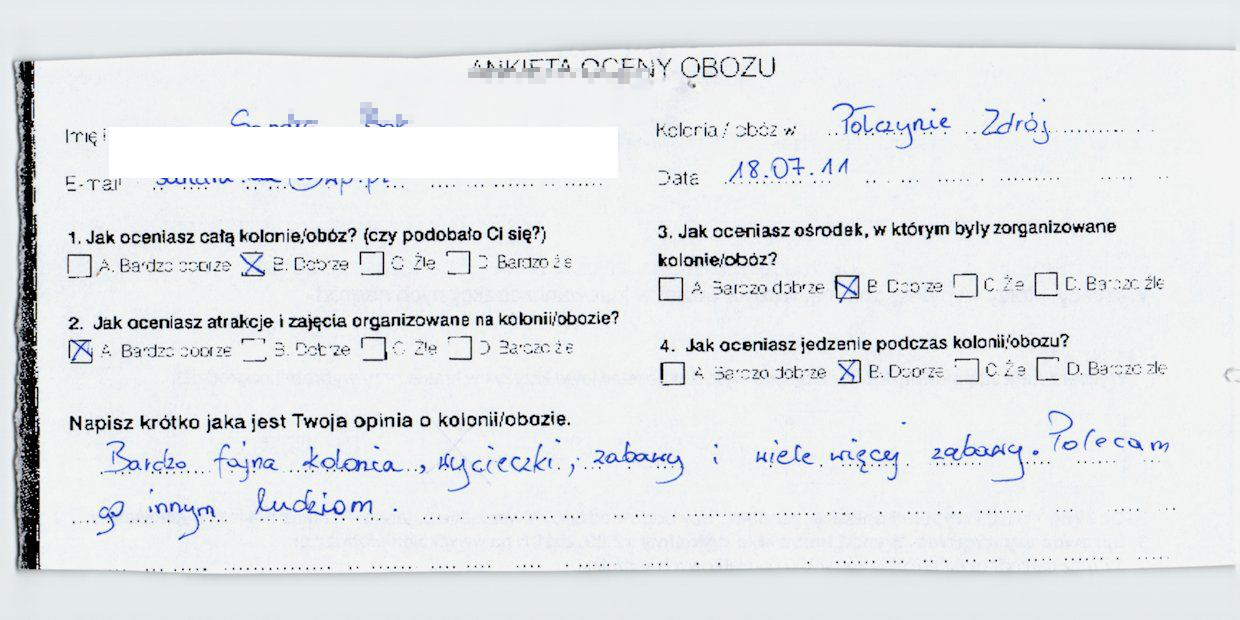 ANKIETA OCENY OBOZU
Imię i
Kolonia / obóz w Połczynie Zdrój
E-mail
Data 18.07.11
1. Jak oceniasz całą kolonie/obóz? (czy podobało Ci się?)
A. Bardzo dobrze B. Dobrze C. Źle D. Bardzo źle
2. Jak oceniasz atrakcje i zajęcia organizowane na kolonii/obozie?
A. Bardzo dobrze B. Dobrze C. Źle D. Bardzo źle
3. Jak oceniasz ośrodek, w którym były zorganizowane
kolonie/obóz?
A. Bardzo dobrze B. Dobrze C. Źle D. Bardzo źle
4. Jak oceniasz jedzenie podczas kolonii/obozu?
A. Bardzo dobrze B. Dobrze C. Źle D. Bardzo źle
Napisz krótko jaka jest Twoja opinia o kolonii/obozie.
Bardzo fajna kolonia, wycieczki, zabawy i wiele więcej zabawy. Polecam
go innym ludziom.